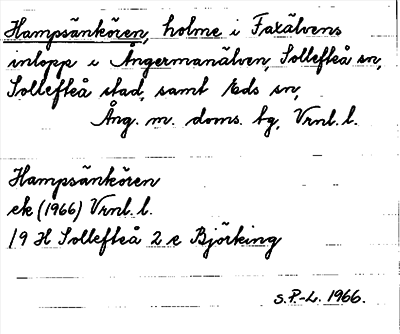 Hampsänkören, holme i Faxälvens
inlopp i Ångermanälven, Sollefteå sn,
Sollefteå stad, samt Eds sn,
Ång. m. doms. tg, Vrnl. l.
Hampsänkören
ek (1966) Vrnl. l.
19 H Sollefteå 2 e Björking
S.P.-L. 1966.